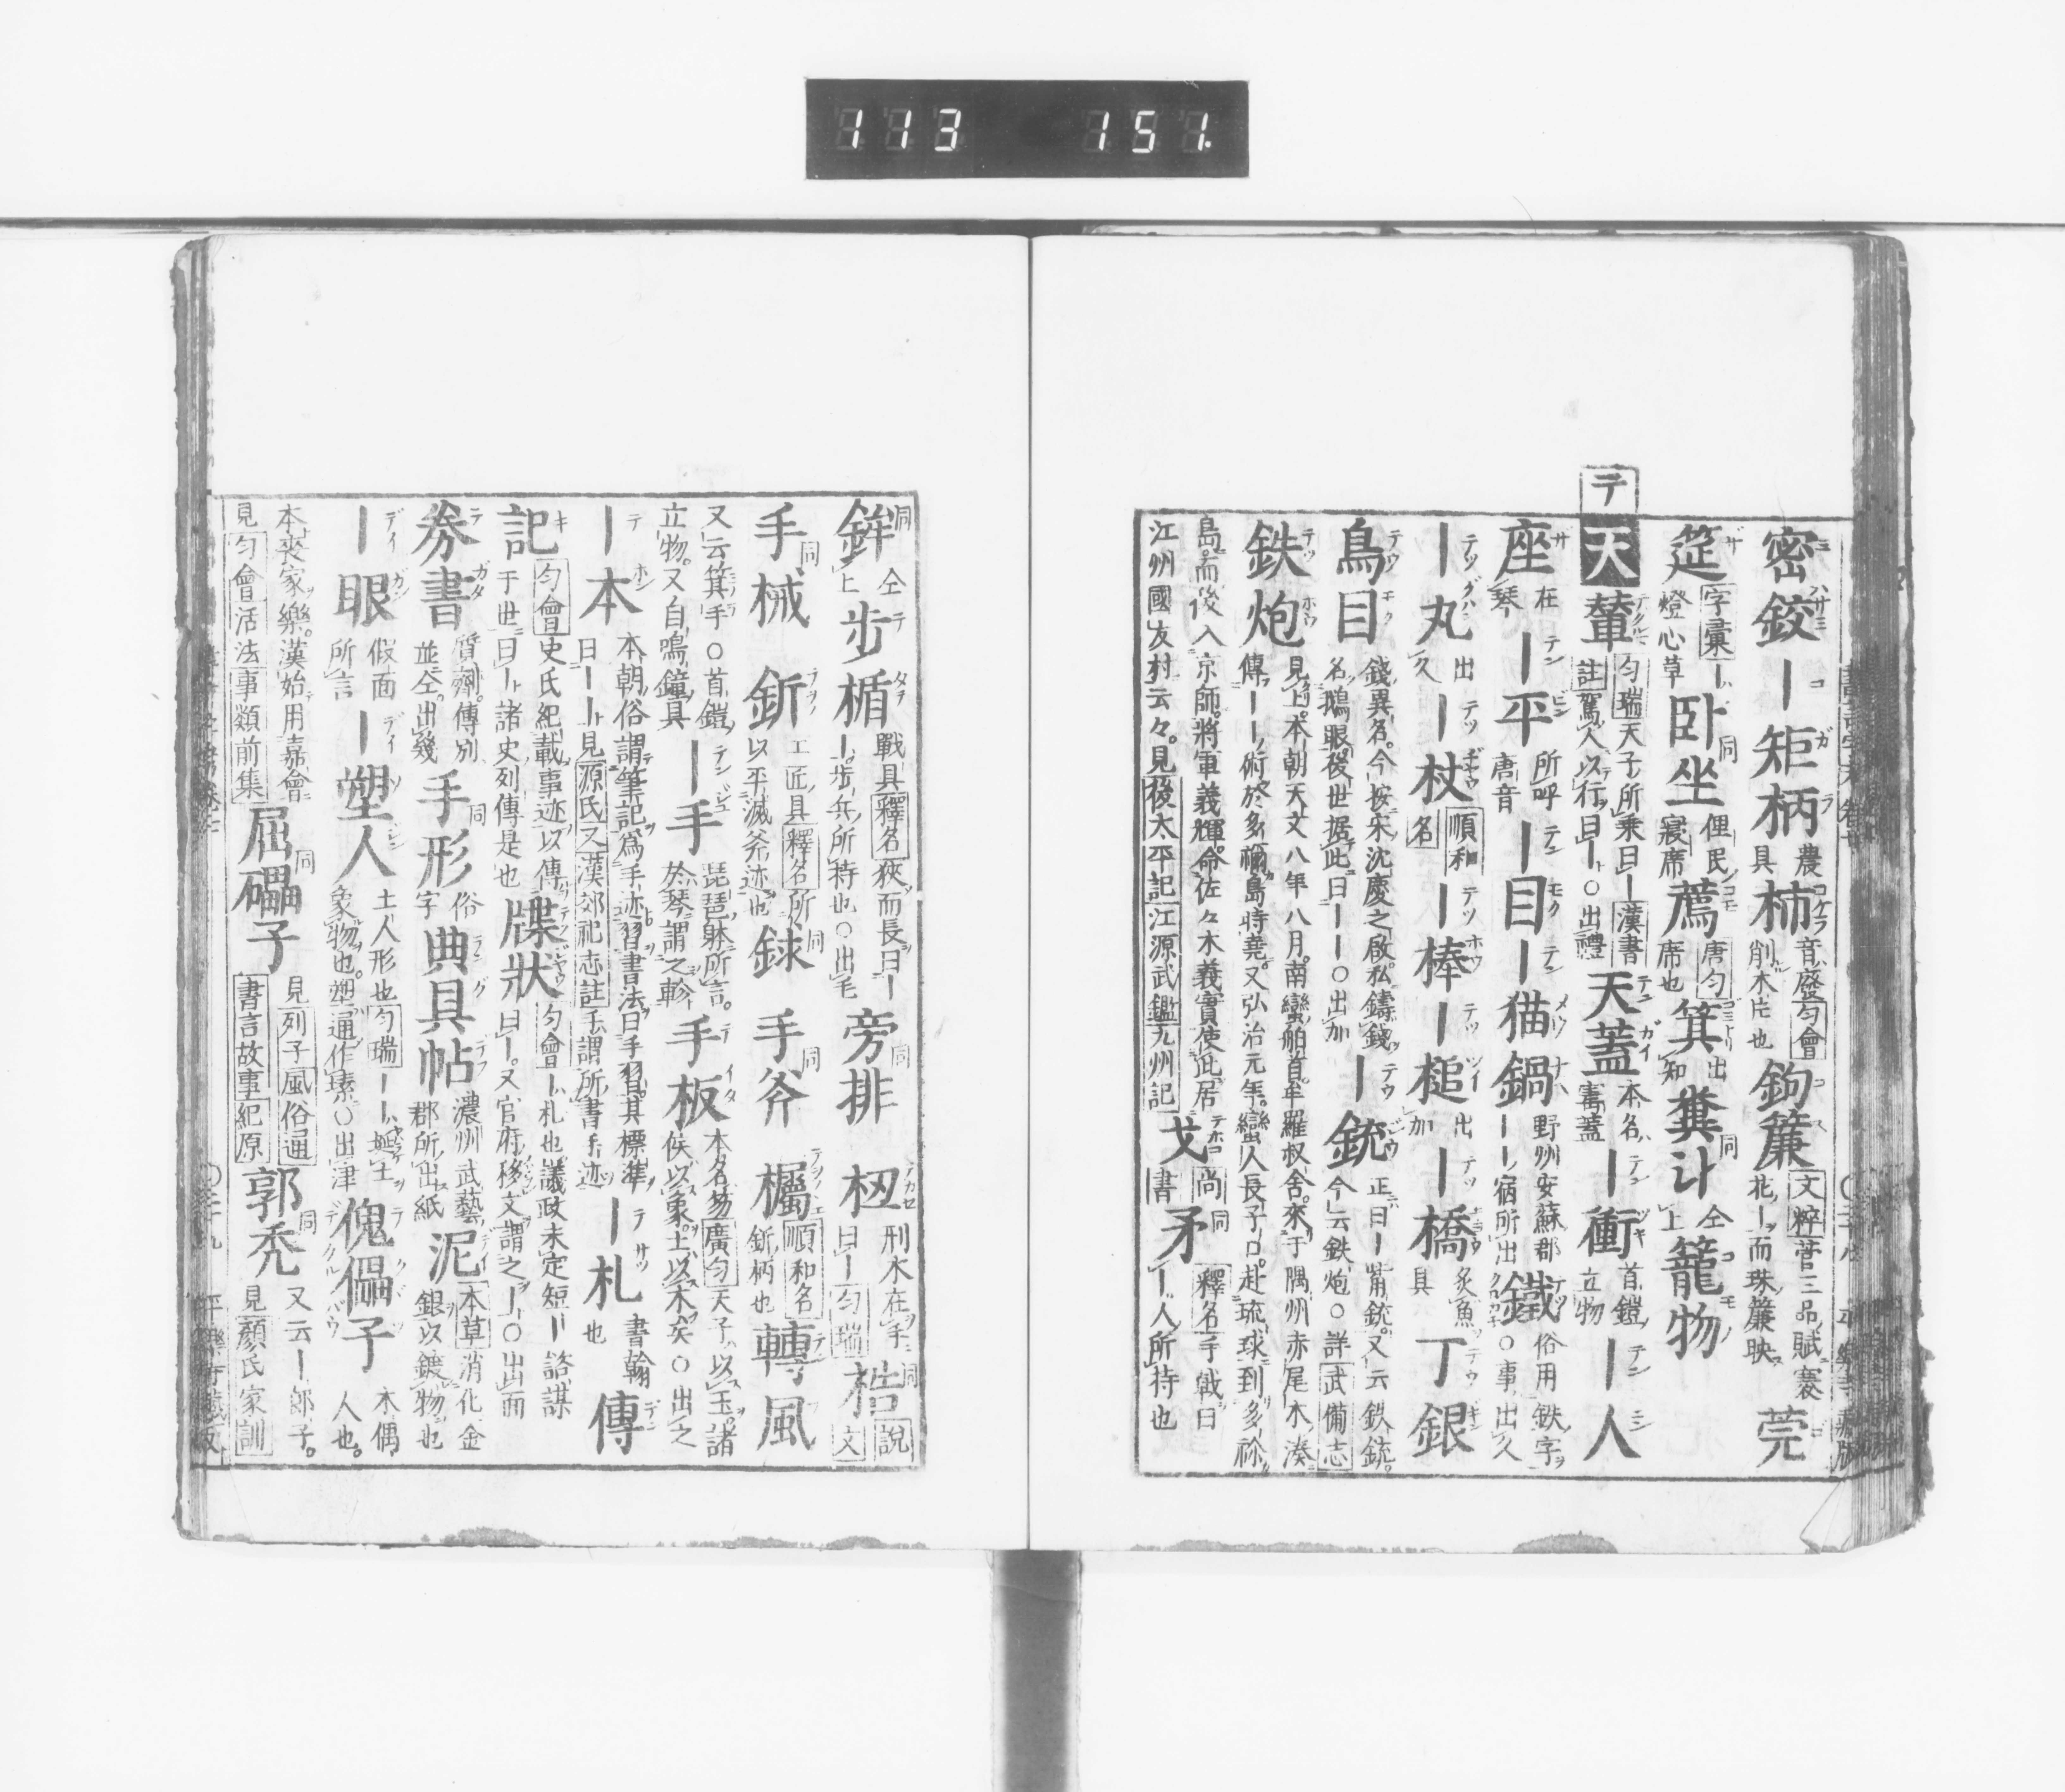 113 151.
密鉸｜矩柄 農具 柿 音廢匀會削木片也 鉤簾 文粹菅三品賦褰花｜而珠簾映 莞
筵 字彙｜燈心草 卧坐 俚民寢席 薦 唐匀席也 箕 出知 糞计 仝上 籠物
テ
天輦 匀瑞天子所乘曰｜漢書註駕人以行曰｜○出禮 天蓋 本名寳蓋 ｜衝 首鎧立物 ｜人
座 在琴 ｜平 所呼唐音 ｜目｜猫鍋 野州安蘇郡｜｜宿所出 鐵 俗用鉄字○事出久
｜丸 出久 ｜杖 順和名 ｜棒｜槌 出加 ｜橋 炙魚具 丁銀
鳥目 錢異名今按宋沈慶之啟私鑄錢名鵝眼後世据此曰｜｜○出加 ｜銃 正曰｜觜銃又云鉄銃今云鉄炮○詳武備志
鉄炮 見上本朝天文八年八月南蠻舶首牟羅叔舍來于隅州赤尾木湊
傳｜｜術於多禰島時堯又弘治元年蠻人長子口赴琉球到多祢
島而後入京師將軍義輝命佐々木義實使此居
江州國友村云々見後太平記江源武鑑九州記 戈 尚書 矛 釋名手戟曰｜人所持也
鉾 仝上 步楯 戰具釋名狹而長曰｜步兵所持也○出毛 旁排 杻 刑木在手曰｜匀瑞 梏 說文
手械 釿 工匠具釋名所以平滅斧迹也 銶 手斧 欘 順和名釿柄也 轉風
又云箕手○首鎧立物又自鳴鐘具 ｜手 琵琶躰所言於琴謂之軫 手板 本名笏廣匀天子以玉諸侯以象士以木矣○出之
｜本 本朝俗謂筆記爲手迹習書法曰手習其標準曰｜｜見源氏又漢郊祀志註手謂所書手迹 ｜札 書翰也 傳
記 匀會史氏紀載事迹以傳于世曰｜諸史列傳是也 牒狀 匀會｜札也議政未定短｜諮謀曰｜又官府移文謂之｜○出而
券書 質劑傳別並仝出幾 手形 俗字 典具帖 濃州武藝郡所出紙 泥 本草消化金銀以鍍物也
｜眼 假面所言 ｜塑人 土人形也匀瑞｜｜埏土象物也塑通作㙛○出津 傀儡子 木偶人也
本喪家樂漢始用嘉會見匀會活法事類前集 屈礧子 見列子風俗通書言故事紀原 郭禿 又云｜郎子見顏氏家訓